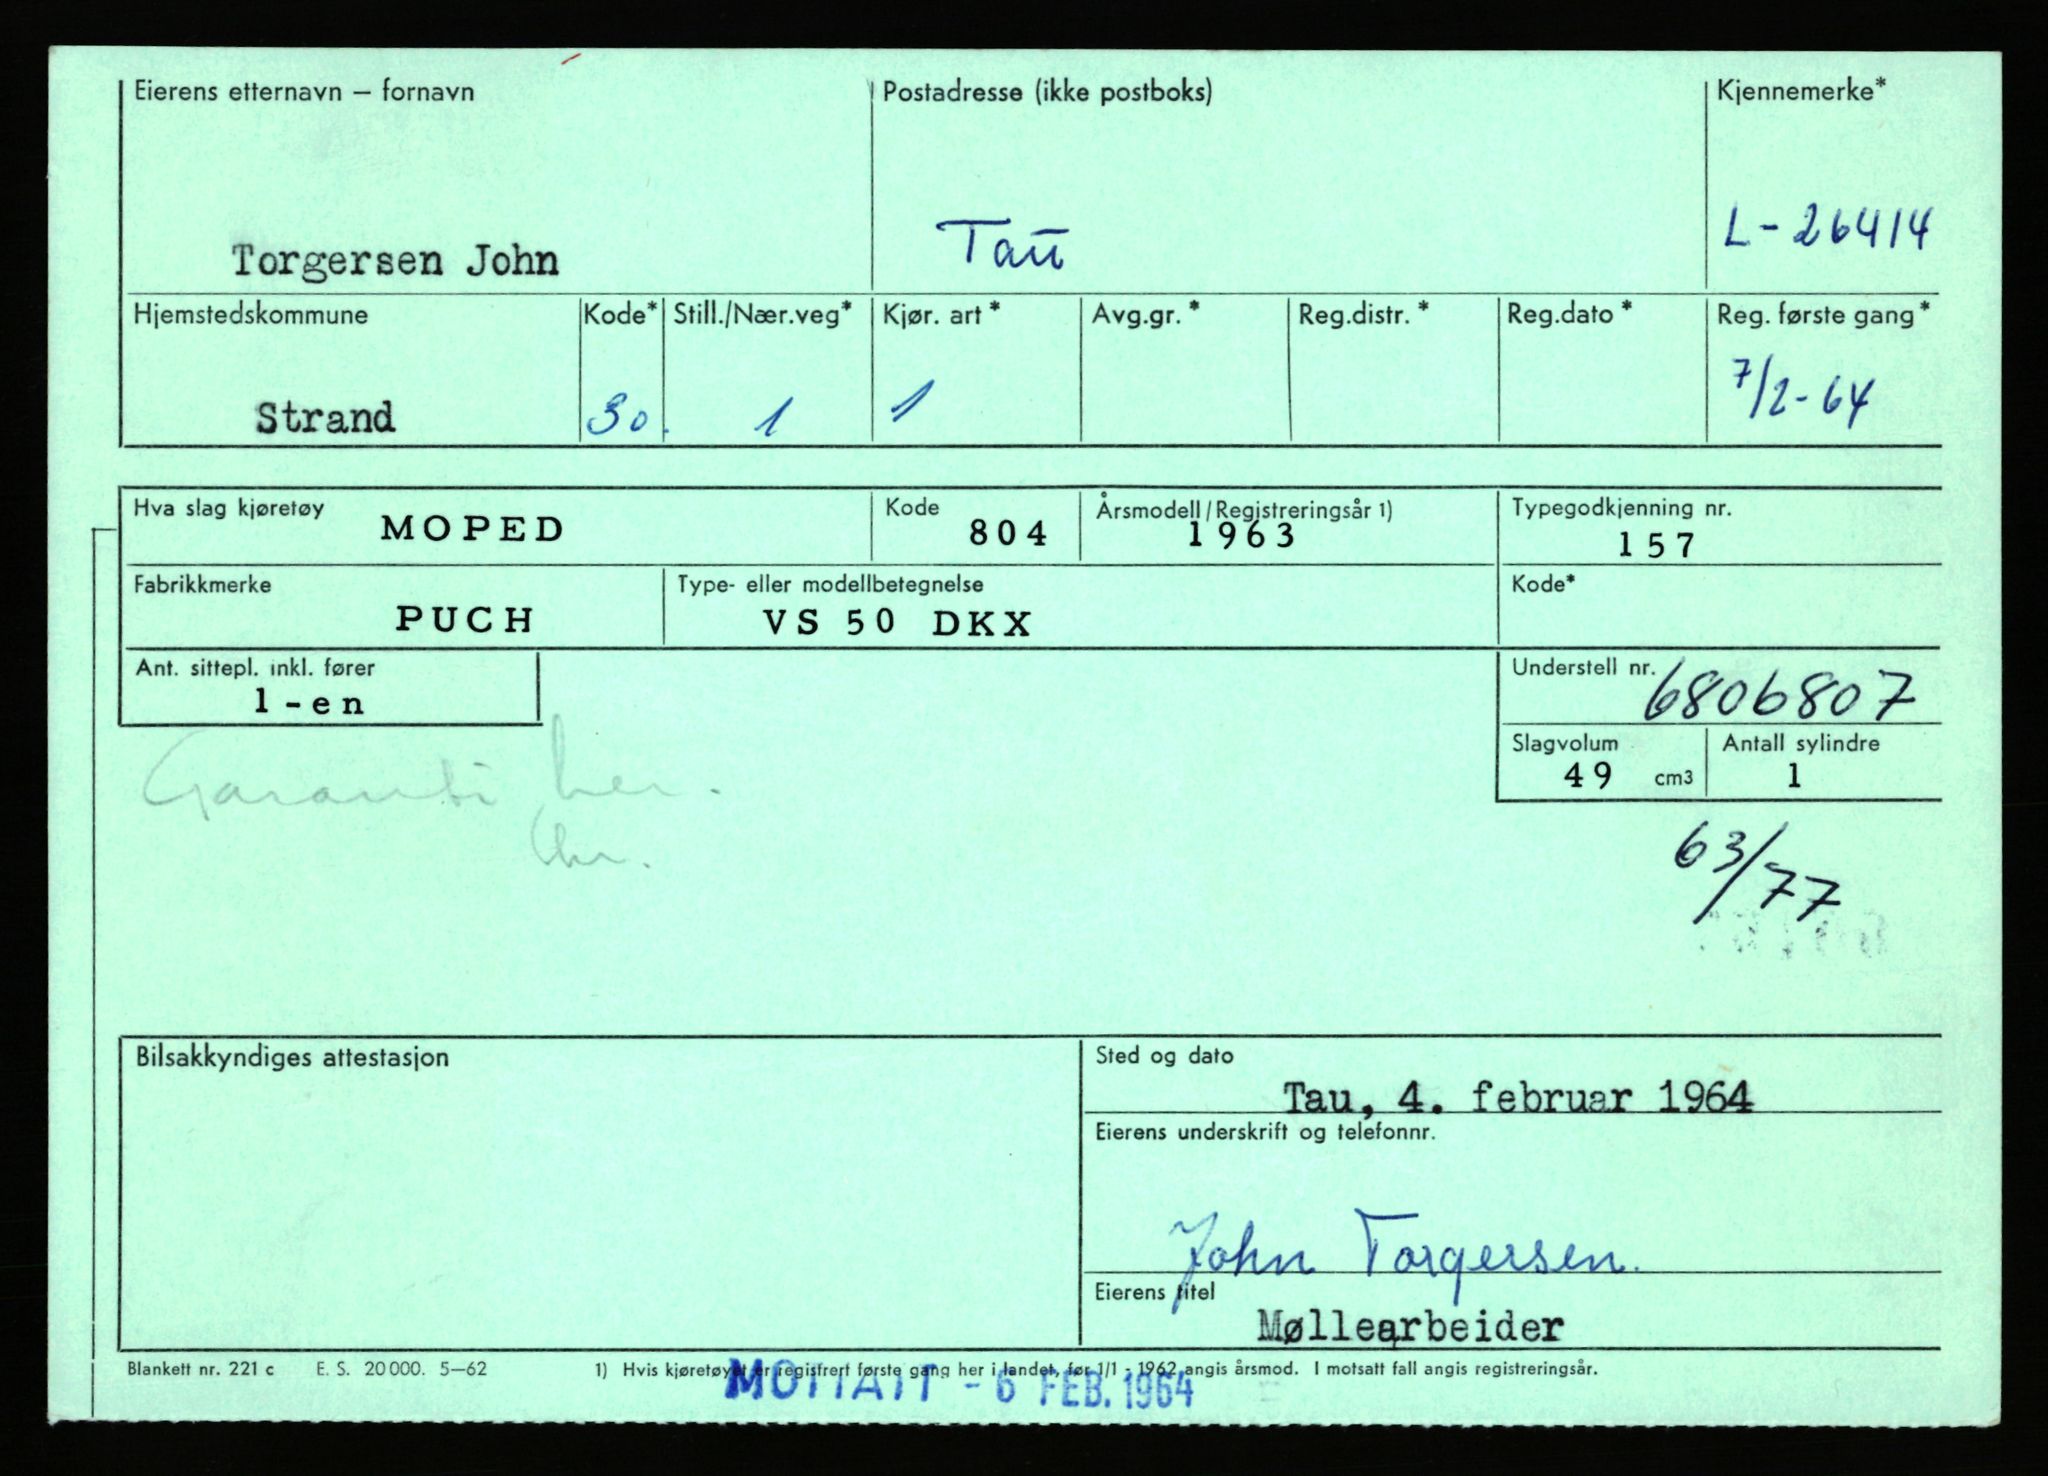 Eierens etternavn – fornavn
Torgersen John
Postadresse (ikke postboks)
Tau
Kjennemerke*
L-26414
Hjemstedskommune
Strand
Kode*
30.
Still./Nær.veg*
1
Kjør. art*
1
Avg.gr.*
Reg.distr.*
Reg.dato*
Reg. første gang*
7/2-64
Hva slag kjøretøy
MOPED
Kode
804
Årsmodell/Registreringsår 1)
1963
Typegodkjenning nr.
157
Fabrikkmerke
PUCH
Type- eller modellbetegnelse
VS 50 DKX
Kode*
Ant. sittepl. inkl. fører
1-en
Understell nr.
6806807
Slagvolum
49 cm3
Antall sylindre
1
Garanti her.
63/77
Bilsakkyndiges attestasjon
Sted og dato
Tau, 4. februar 1964
Eierens underskrift og telefonnr.
John Torgersen.
Eierens titel
Møllearbeider
Blankett nr. 221 c E. S. 20000. 5–62 1) Hvis kjøretøyet er registrert første gang her i landet, før 1/1 - 1962 angis årsmod. I motsatt fall angis registreringsår.
MOTTATT - 6 FEB. 1964